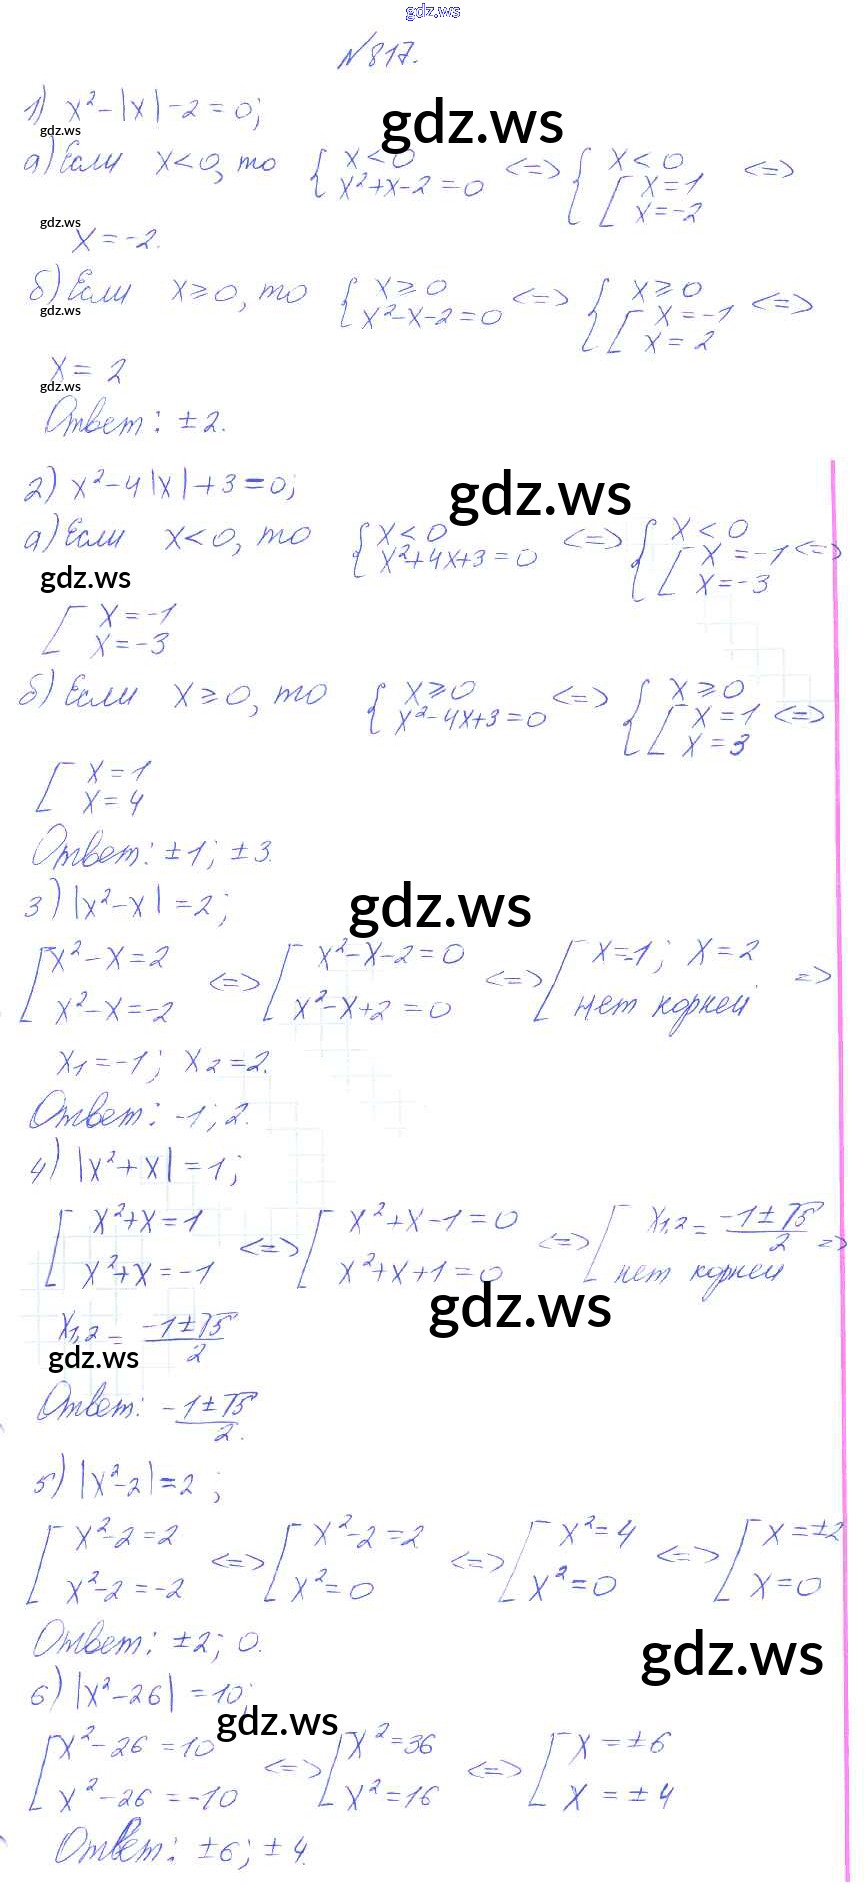 gdz.ws
№817.
1) x²-|x|-2=0;
gdz.ws
gdz.ws
а) Если x<0, то { x<0 x²+x-2=0 <=> { x<0 [ x=1 x=-2 <=>
gdz.ws
x=-2.
б) Если x≥0, то { x≥0 x²-x-2=0 <=> { x≥0 [ x=-1 x=2 <=>
gdz.ws
x=2
gdz.ws
Ответ: ±2.
2) x²-4|x|+3=0;
gdz.ws
а) Если x<0, то { x<0 x²+4x+3=0 <=> { x<0 [ x=-1 x=-3 <=>
gdz.ws
[ x=-1 x=-3
б) Если x≥0, то { x≥0 x²-4x+3=0 <=> { x≥0 [ x=1 x=3 <=>
[ x=1 x=4
Ответ: ±1; ±3.
3) |x²-x|=2;
gdz.ws
[ x²-x=2 x²-x=-2 <=> [ x²-x-2=0 x²-x+2=0 <=> [ x=-1; x=2 нет корней =>
x₁=-1; x₂=2.
Ответ: -1; 2.
4) |x²+x|=1;
[ x²+x=1 x²+x=-1 <=> [ x²+x-1=0 x²+x+1=0 <=> [ x₁,₂=(-1±√5)/2 нет корней =>
gdz.ws
x₁,₂=(-1±√5)/2
gdz.ws
Ответ: (-1±√5)/2.
5) |x²-2|=2;
[ x²-2=2 x²-2=-2 <=> [ x²-2=2 x²=0 <=> [ x²=4 x²=0 <=> [ x=±2 x=0
Ответ: ±2; 0.
gdz.ws
6) |x²-26|=10;
gdz.ws
[ x²-26=10 x²-26=-10 <=> [ x²=36 x²=16 <=> [ x=±6 x=±4
Ответ: ±6; ±4.